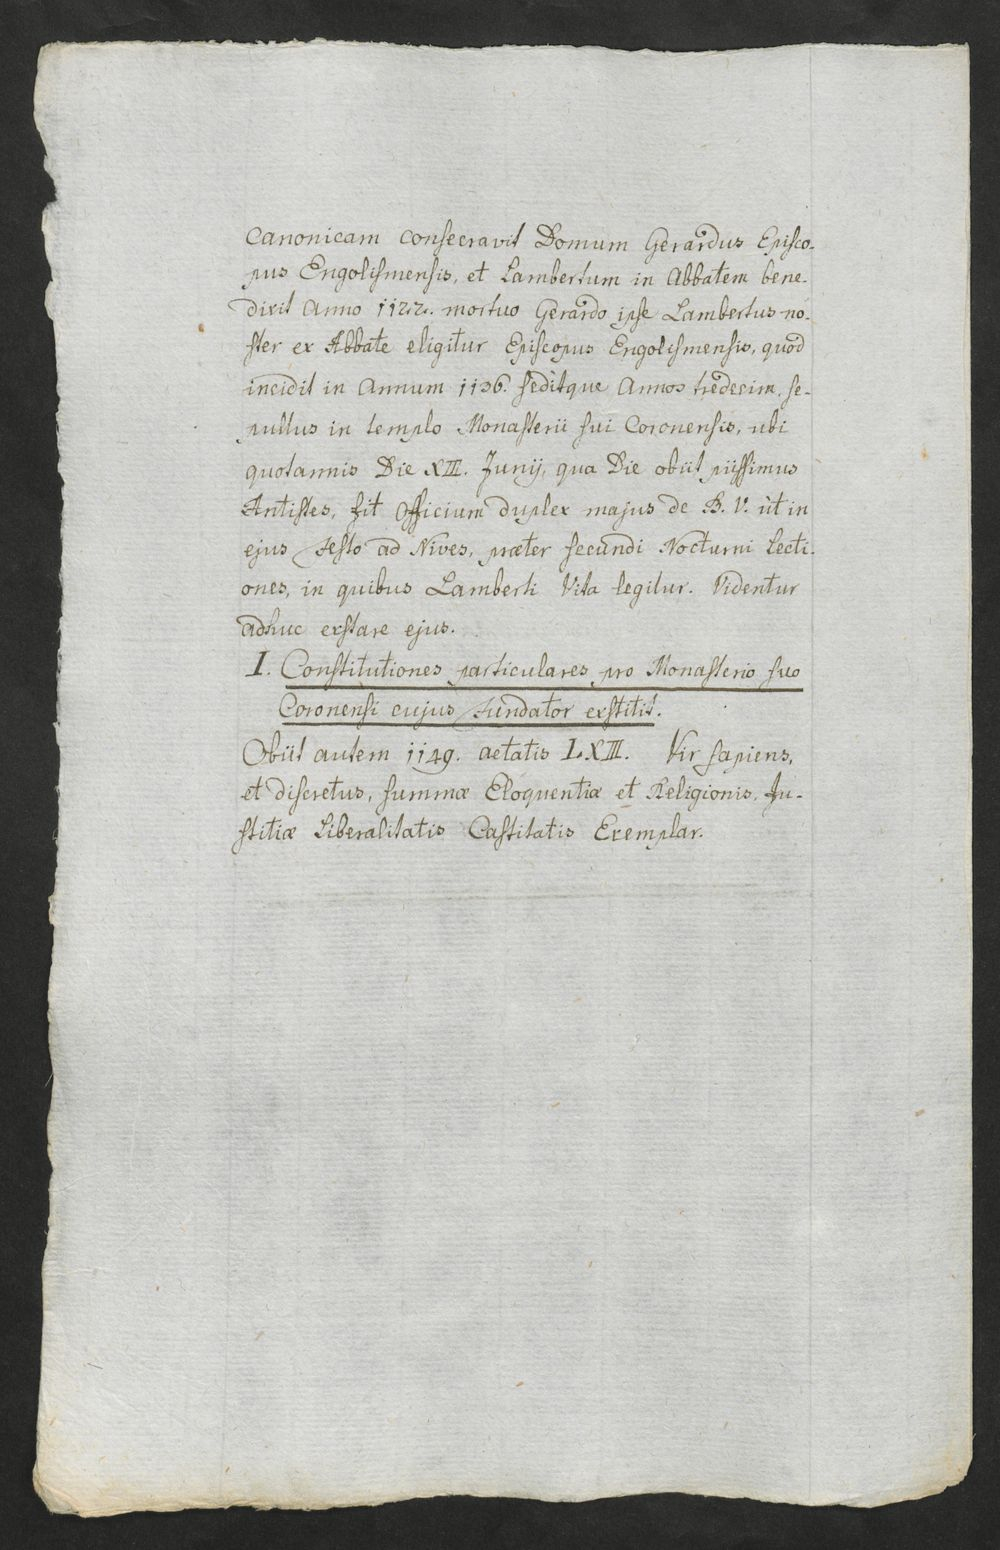 Canonicam consecravit Domum Gerardus Episco-
pus Engolismensis, et Lambertum in Abbatem bene-
dixit Anno 1122. mortuo Gerardo ipse Lambertus no-
ster ex Abbate eligitur Episcopus Engolismensis, quod
incidit in Annum 1136. seditque Annos tredecim, se-
pultus in templo Monasterii sui Coronensis, ubi
quotannis Die XIII. Junij, qua Die obiit piissimus
Antistes, fit Officium duplex majus de B. V. ut in
ejus Festo ad Nives, præter secundi Nocturni Lecti-
ones, in quibus Lamberti Vita legitur. Videntur
adhuc exstare ejus.
I. Constitutiones particulares pro Monasterio suo
Coronensi cujus Fundator exstitit.
Obiit autem 1149. aetatis LXIII. Vir sapiens,
et discretus, summæ Eloquentiæ et Religionis, Ju-
stitiæ Liberalitatis Castitatis Exemplar.